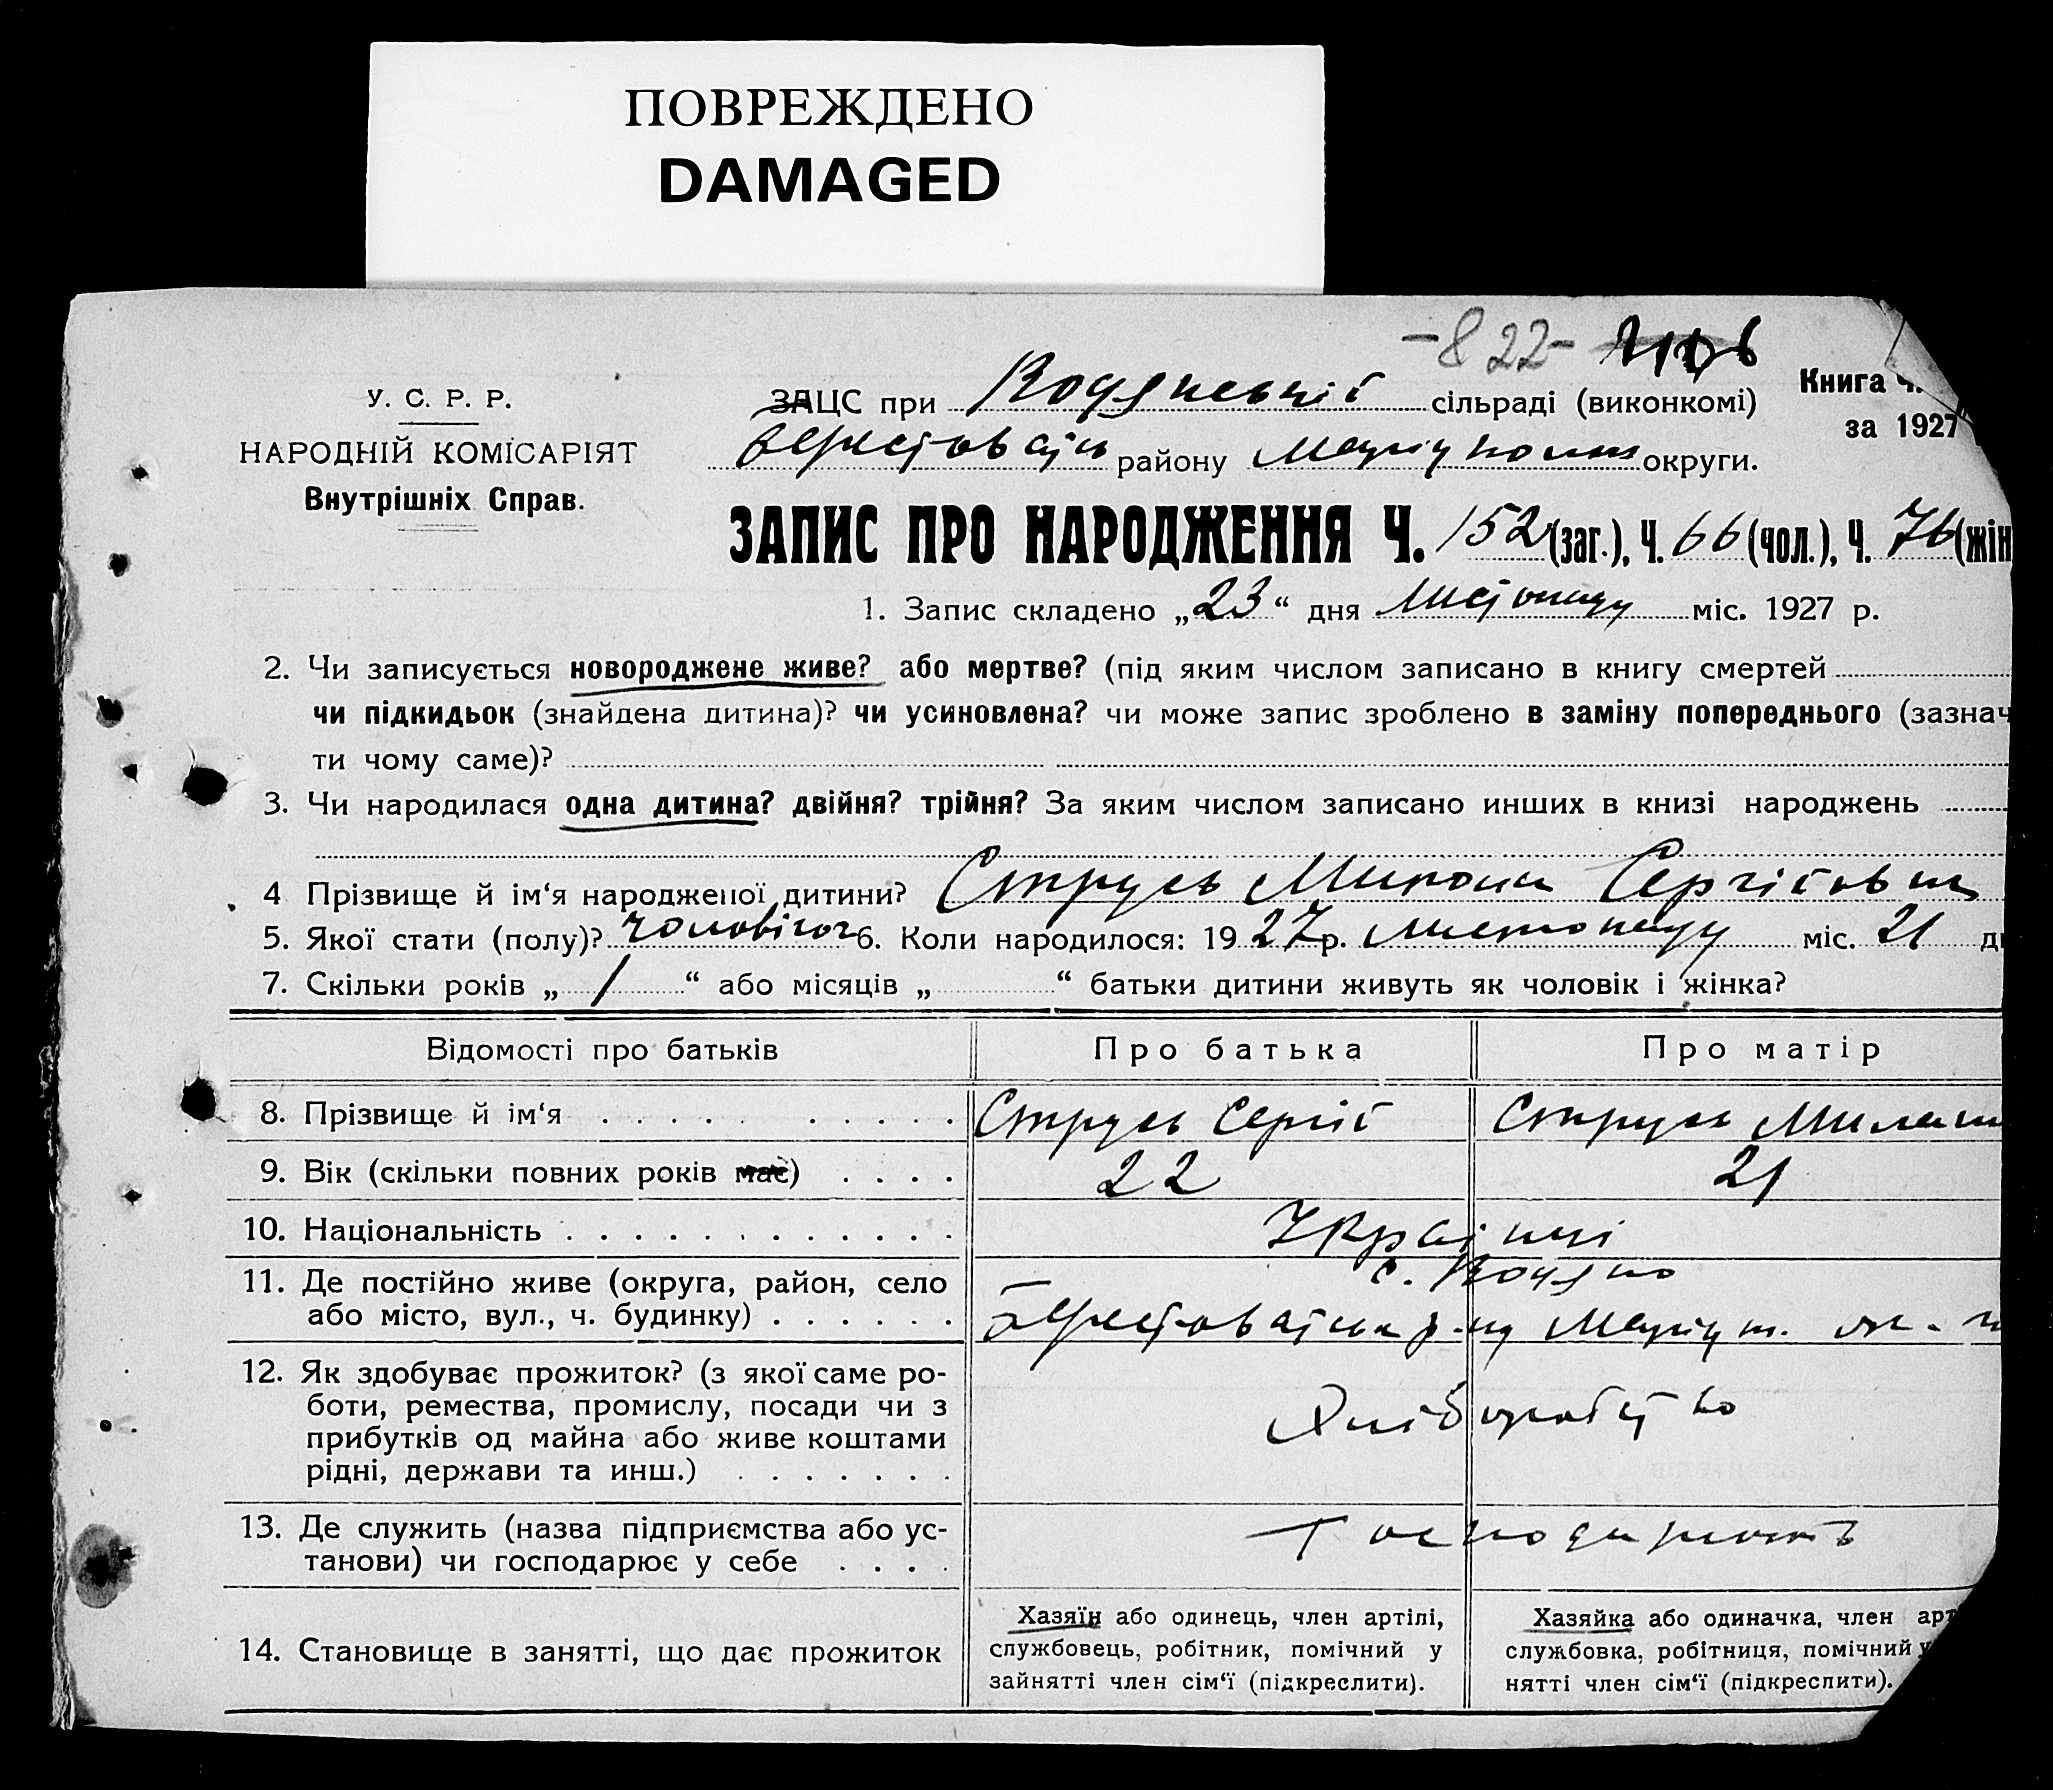 ПОВРЕЖДЕНО
DAMAGED
-822-
У. С. Р. Р.
НАРОДНІЙ КОМІСАРІЯТ
Внутрішніх Справ.
ЗАЦС при Водянській сільраді (виконкомі)
району Маріупольськ округи.
Книга ч.
за 1927
ЗАПИС ПРО НАРОДЖЕННЯ Ч. 152 (заг.), Ч. 66 (чол.), Ч. 76 (жін
1. Запис складено „23“ дня Листопаду міс. 1927 р.
2. Чи записується новороджене живе? або мертве? (під яким числом записано в книгу смертей
чи підкидьок (знайдена дитина)? чи усиновлена? чи може запис зроблено в заміну попереднього (зазнач
ти чому саме)?
3. Чи народилася одна дитина? двійня? трійня? За яким числом записано инших в книзі народжень
4 Прізвище й ім‘я народженої дитини? Струсь Сергієвич
5. Якої стати (полу)? 6. Коли народилося: 1927 р. листопаду міс. 21 д
7. Скільки років „1“ або місяців „ “ батьки дитини живуть як чоловік і жінка?
Відомості про батьків Про батька Про матір
8. Прізвище й ім‘я Струсь Сергій Струсь
9. Вік (скільки повних років має) 22 21
10. Національність Українці
с. Водяно
11. Де постійно живе (округа, район, село
або місто, вул., ч. будинку)
12. Як здобуває прожиток? (з якої саме ро-
боти, ремества, промислу, посади чи з
прибутків од майна або живе коштами
рідні, держави та инш.)
Хліборобство
13. Де служить (назва підприємства або ус-
танови) чи господарює у себе
14. Становище в занятті, що дає прожиток
Хазяїн або одинець, член артілі,
службовець, робітник, помічний у
зайнятті член сім‘ї (підкреслити).
Хазяйка або одиначка, член арт
службовка, робітниця, помічний у
нятті член сім‘ї (підкреслити).